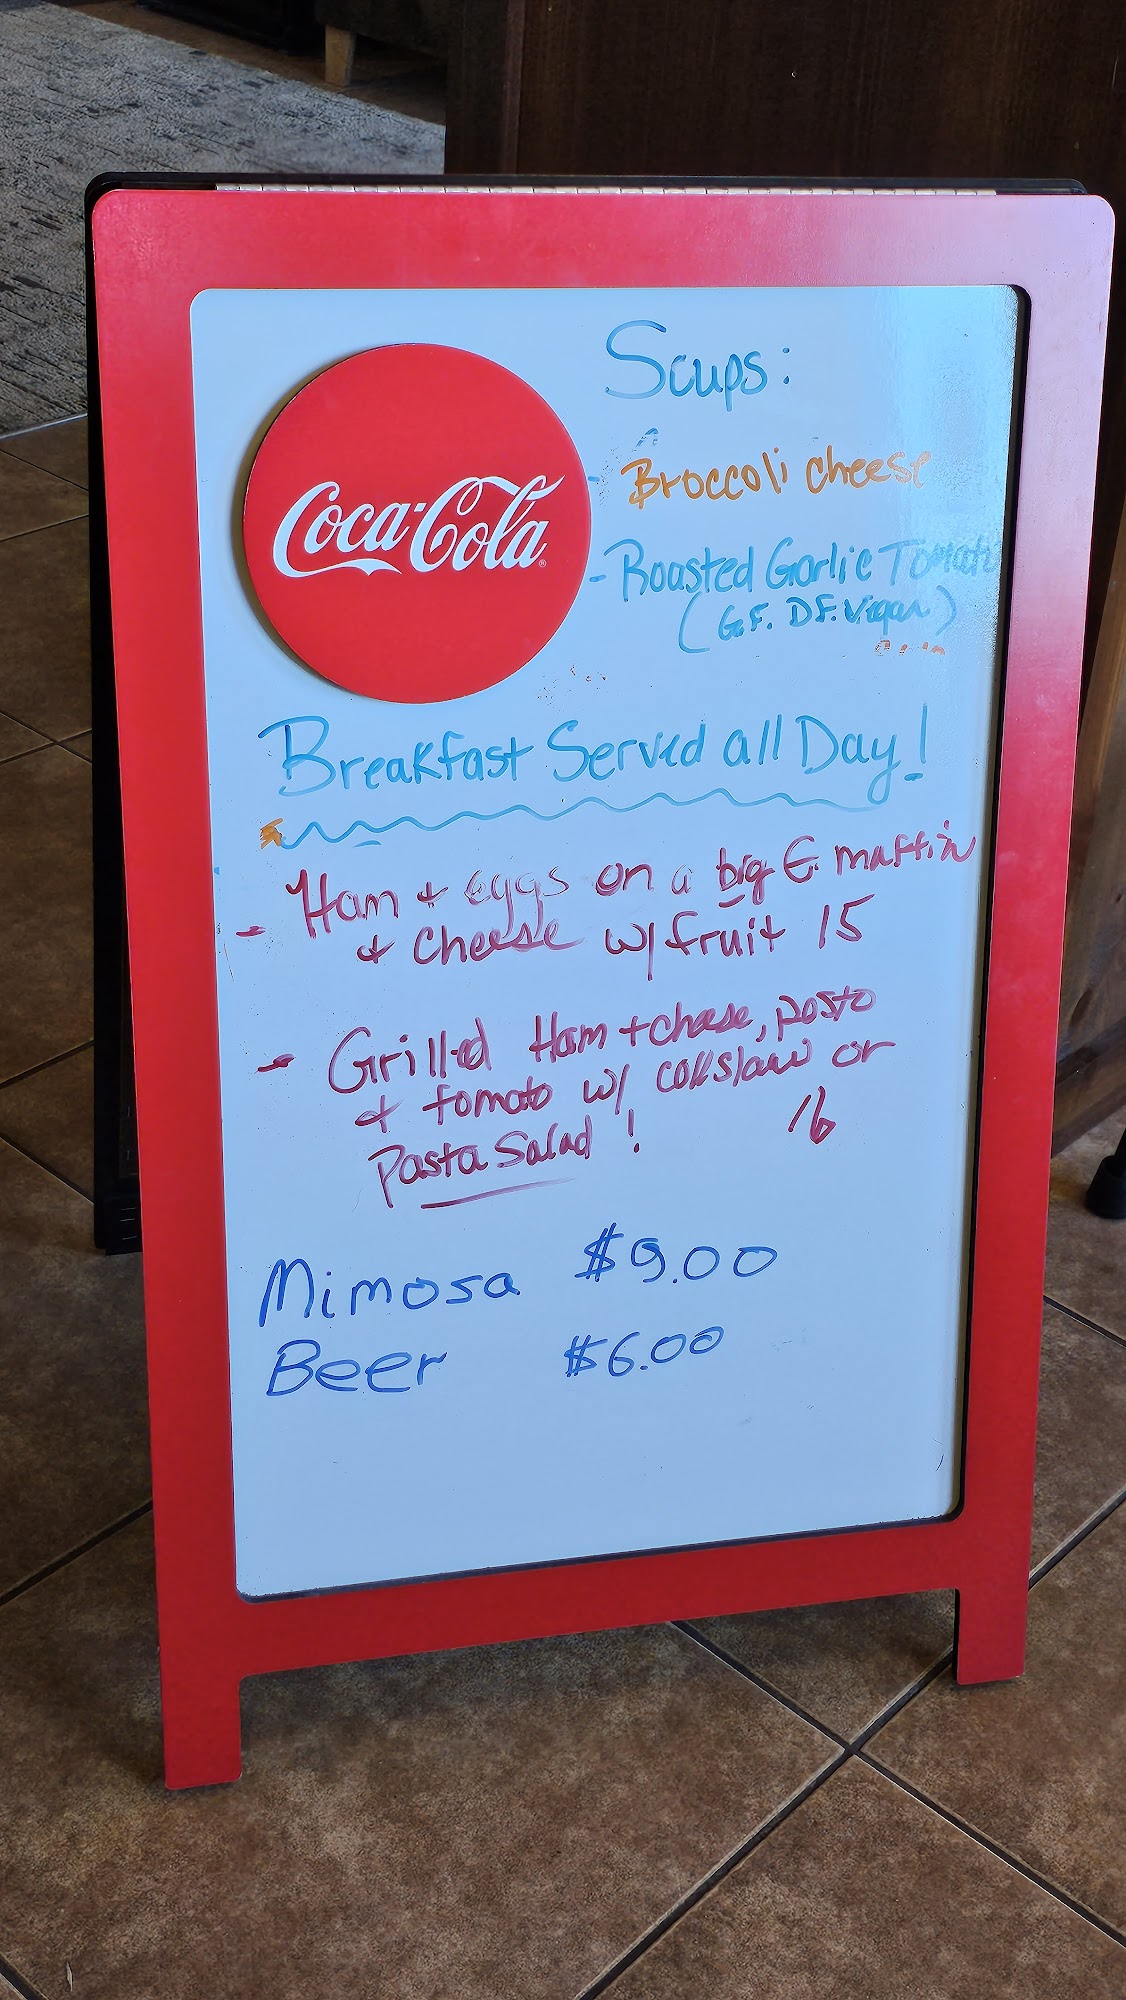 Coca-Cola
Soups:
- Broccoli cheese
- Roasted Garlic Tomato
(G.F. D.F. Vegan)
Breakfast Served all Day!
- Ham + eggs on a big E. muffin
+ cheese w/ fruit 15
- Grilled Ham + cheese, pesto
+ tomato w/ coleslaw or
Pasta Salad! 16
Mimosa $9.00
Beer $6.00